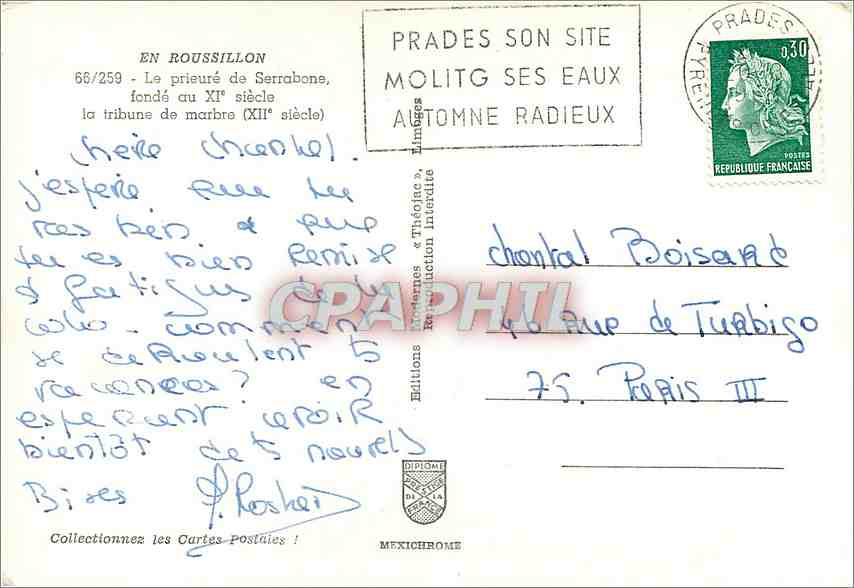 EN ROUSSILLON
66/259 - Le prieuré de Serrabone,
fondé au XIe siècle
la tribune de marbre (XIIe siècle)
PRADES SON SITE
MOLITG SES EAUX
AUTOMNE RADIEUX
PRADES
0,30
POSTES
REPUBLIQUE FRANÇAISE
chère chantal.
j'espère que tu
vas bien & que
tu es bien remise
des fatigues de la
colo. Comment
se déroulent ts
vacances? en
espérant avoir
bientôt de ts nouvels
Bises
Chantal Boisard
46 rue de Turbigo
75. Paris III
Editions Modernes « Théojac », Limoges
Reproduction interdite
CPAPHIL
DIPLOME
PRESTIGE
DE LA
FRANCE
Collectionnez les Cartes Postales !
MEXICHROME